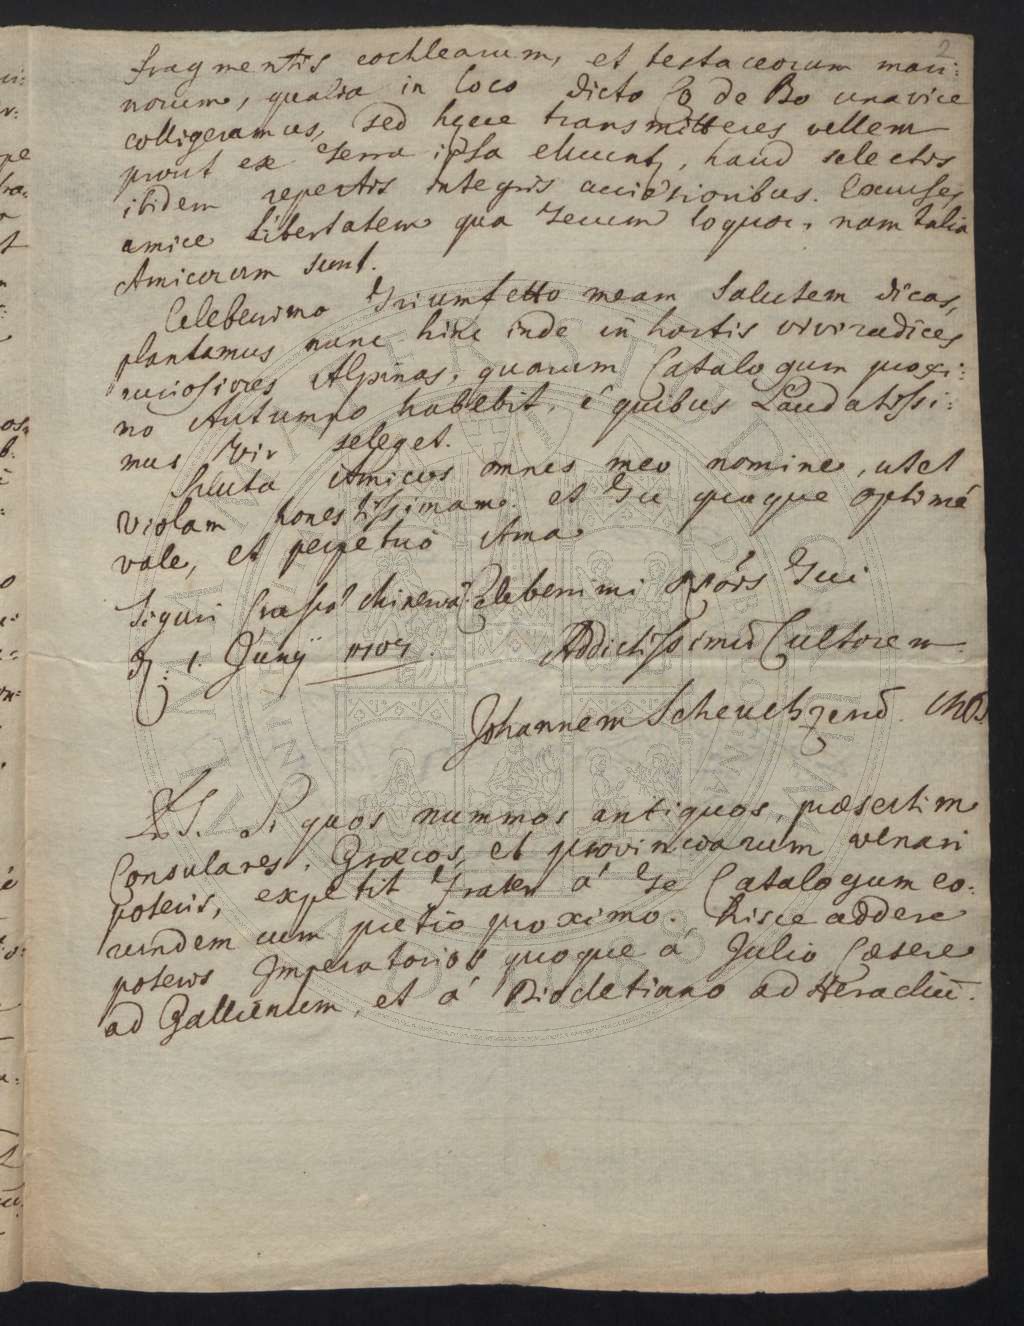 2
fragmentis cochlearum, et testaceorum mari:
norum, qualia in loco dicto Cò de Bo una vice
colligeramus, sed hæce transmitteres vellem
prout ex terra ipsa eluunt, haud selectis
ibidem repertis integris
amice libertatem qua tecum loquor, nam talia
Amicorum sunt.
Celeberrimo Triumfetto meam Salutem dicas,
plantamus nunc hinc inde in hortis viviradices
rariores Alpinas, quarum Catalogum proxi:
mo Autumno habebit, é quibus Laudatissi:
mus Vir seleget.
Saluta Amicos omnes meo nomine, utet
Violam honestissimam. et Tu quoque optimé
vale, et perpetuò Ama
Tiguri Celeberrimi Tui
d. 1. Junÿ 1707. Addictissimū Cultorem
Johannem Scheuchzerū.
PS. Si quos nummos antiquos, præsertim
Consulares, Græcos, et provinciarum venari
poteris, expetit Frater á Te Catalogum eo:
rundem cum pretio proximo. hisce addere
poteris Imperatorios quoque á Julio Cæsere
ad Gallienum, et á Diocletiano ad Heracliū.